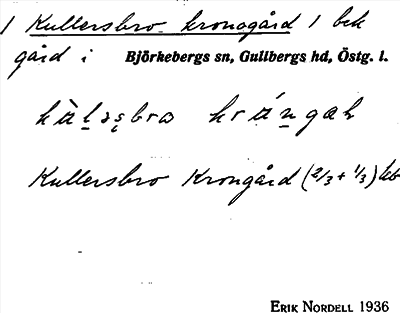 1 Kullersbro kronogård 1 bek
gård i Björkebergs sn, Gullbergs hd, Östg. l.
Kullersbro Krongård (2/3 + 1/3)
ERIK NORDELL 1936